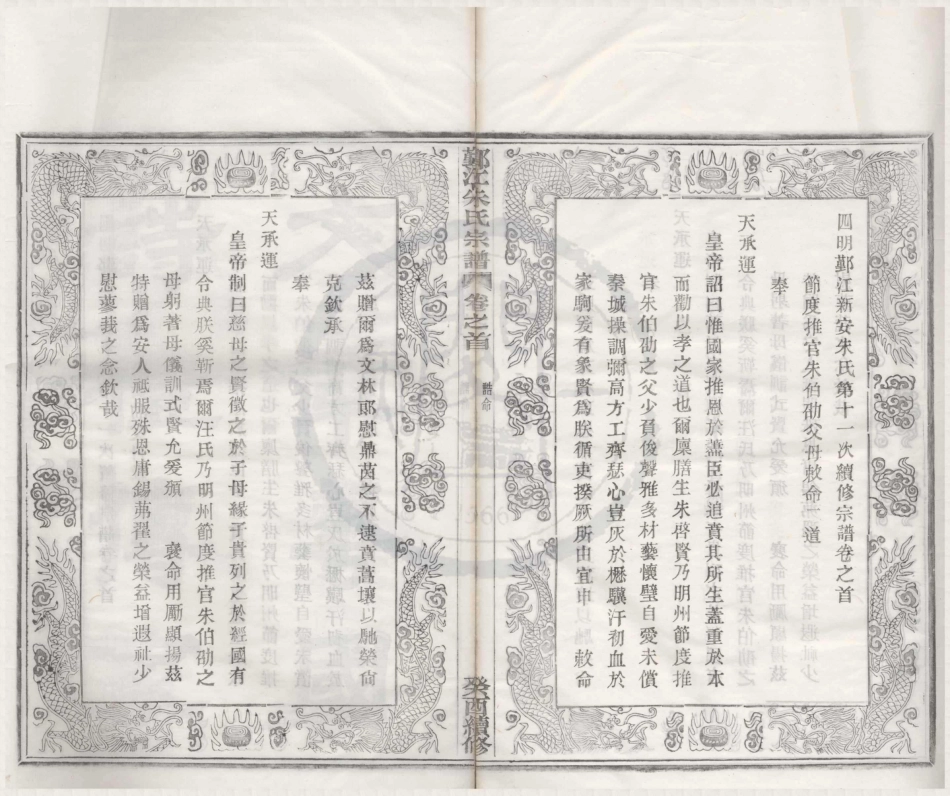 四明鄞江新安朱氏第十一次續修宗譜卷之首
節度推官朱伯劭父母敕命二道
奉
天承運
皇帝詔曰惟國家推恩於藎臣必追賁其所生蓋重於本
而勸以孝之道也爾廩膳生朱啓賢乃明州節度推
官朱伯劭之父少負俊聲雅多材藝懷璧自愛未償
秦城操調彌高方工齊瑟心豈灰於櫪驥汗初血於
家駒爰有象賢為朕循吏揆厥所由宜申 敕命
鄞江朱氏宗譜 卷之首
誥命
癸酉續修
茲贈爾為文林郎慰鼎茵之不逮賁蒿壤以馳榮尙
克欽承
奉
天承運
皇帝制曰慈母之賢徵之於子母緣子貴列之於經國有
令典朕奚靳焉爾汪氏乃明州節度推官朱伯劭之
母躬著母儀訓式賢允爰頒 褒命用勵顯揚茲
特贈為安人祗服殊恩庸錫萬翟之榮益增遐祉少
慰蓼莪之念欽哉